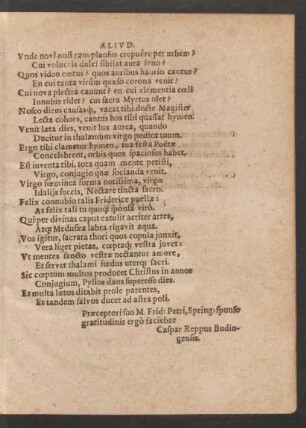 ALIVD.
Vnde novi nostram plausus crepuêre per urbem?
Cui volucris dulci sibilat aura sono?
Quos video cœtus? quos auribus haurio cantus?
En cui tanta virûm quaso corona venit?
Cui nova plectra canunt? en cui clementia cœli
Innubis ridet? cui sacra Myrtus olet?
Nosco diem causasq́;, vacat tibi docte Magister
Lecta cohors, cantus hos tibi quassat hymen.
Venit lata dies, venit lux aurea, quando
Ducitur in thalamum virgo pudica tuum.
Ergo tibi clametur hymen, tua festa Poëtæ
Concelebrent, orbis quos spaciosus habet.
Est inventa tibi, tota quam mente petisti,
Virgo, conjugio quæ socianda venit.
Virgo fœminea forma notissima, virgo
Idalijs soccis, Nectare tincta sacro.
Felix connubio talis Friderice puella:
At felix tali tu quoq́; sponsa virô.
Qui per divinas caput extulit acriter artes,
Atq́; Medusæa labra rigavit aqua.
Vos igitur, sacrata thori quos copula junxit,
Vera liget pietas, cœptaq́; vestra juvet:
Vt mentes sancto vestræ nectantur amore,
Et servet thalami fœdus uterq́; sacri.
Sic cœptum multos producet Christus in annos
Conjugium, Pylios dans superesse dies.
Et multa latos ditabit prole parentes,
Et tandem salvos ducet ad astra poli.
Præceptori suo M. Frid: Petri, Spring: sponso
gratitudinis ergò faciebat
Caspar Reppus Budin-
gensis.